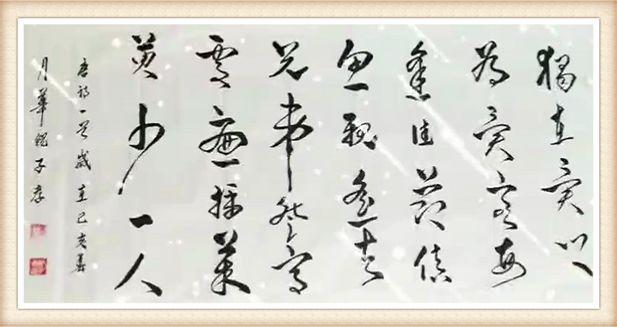 獨在異鄉
為異客每
逢佳節倍
思親遙知
兄弟登高
處遍插茱
萸少一人
唐詩一首歲在己亥
月華子